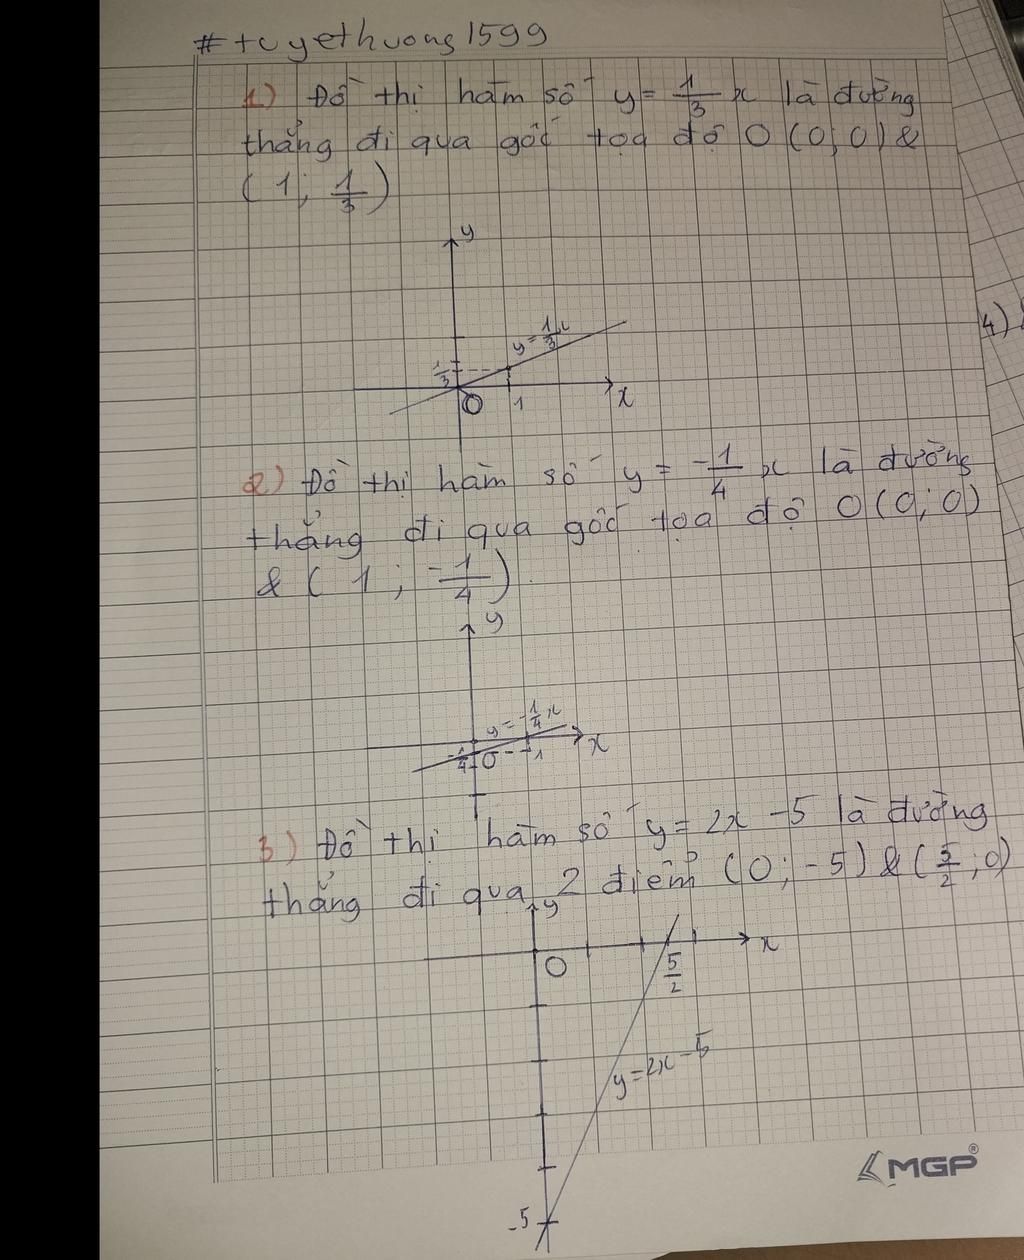 #tuyethuong1599
1) Đồ thị hàm số y = 1/3 x là đường
thẳng đi qua gốc tọa độ O (0; 0) &
(1; 1/3)
y
y = 1/3 x
1/3
O 1 x
4)
2) Đồ thị hàm số y = -1/4 x là đường
thẳng đi qua gốc tọa độ O (0; 0)
& (1; -1/4)
y
y = -1/4 x
-1/4 O 1 x
3) Đồ thị hàm số y = 2x - 5 là đường
thẳng đi qua 2 điểm (0; -5) & (5/2; 0)
y
O 5/2 x
y = 2x - 5
-5
MGP®